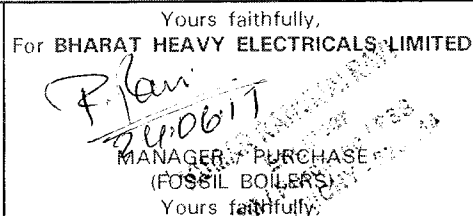 Yours faithfully,
For BHARAT HEAVY ELECTRICALS LIMITED
P. Ravi
24.06.11
MANAGER / PURCHASE
(FOSSIL BOILERS)
Yours faithfully,